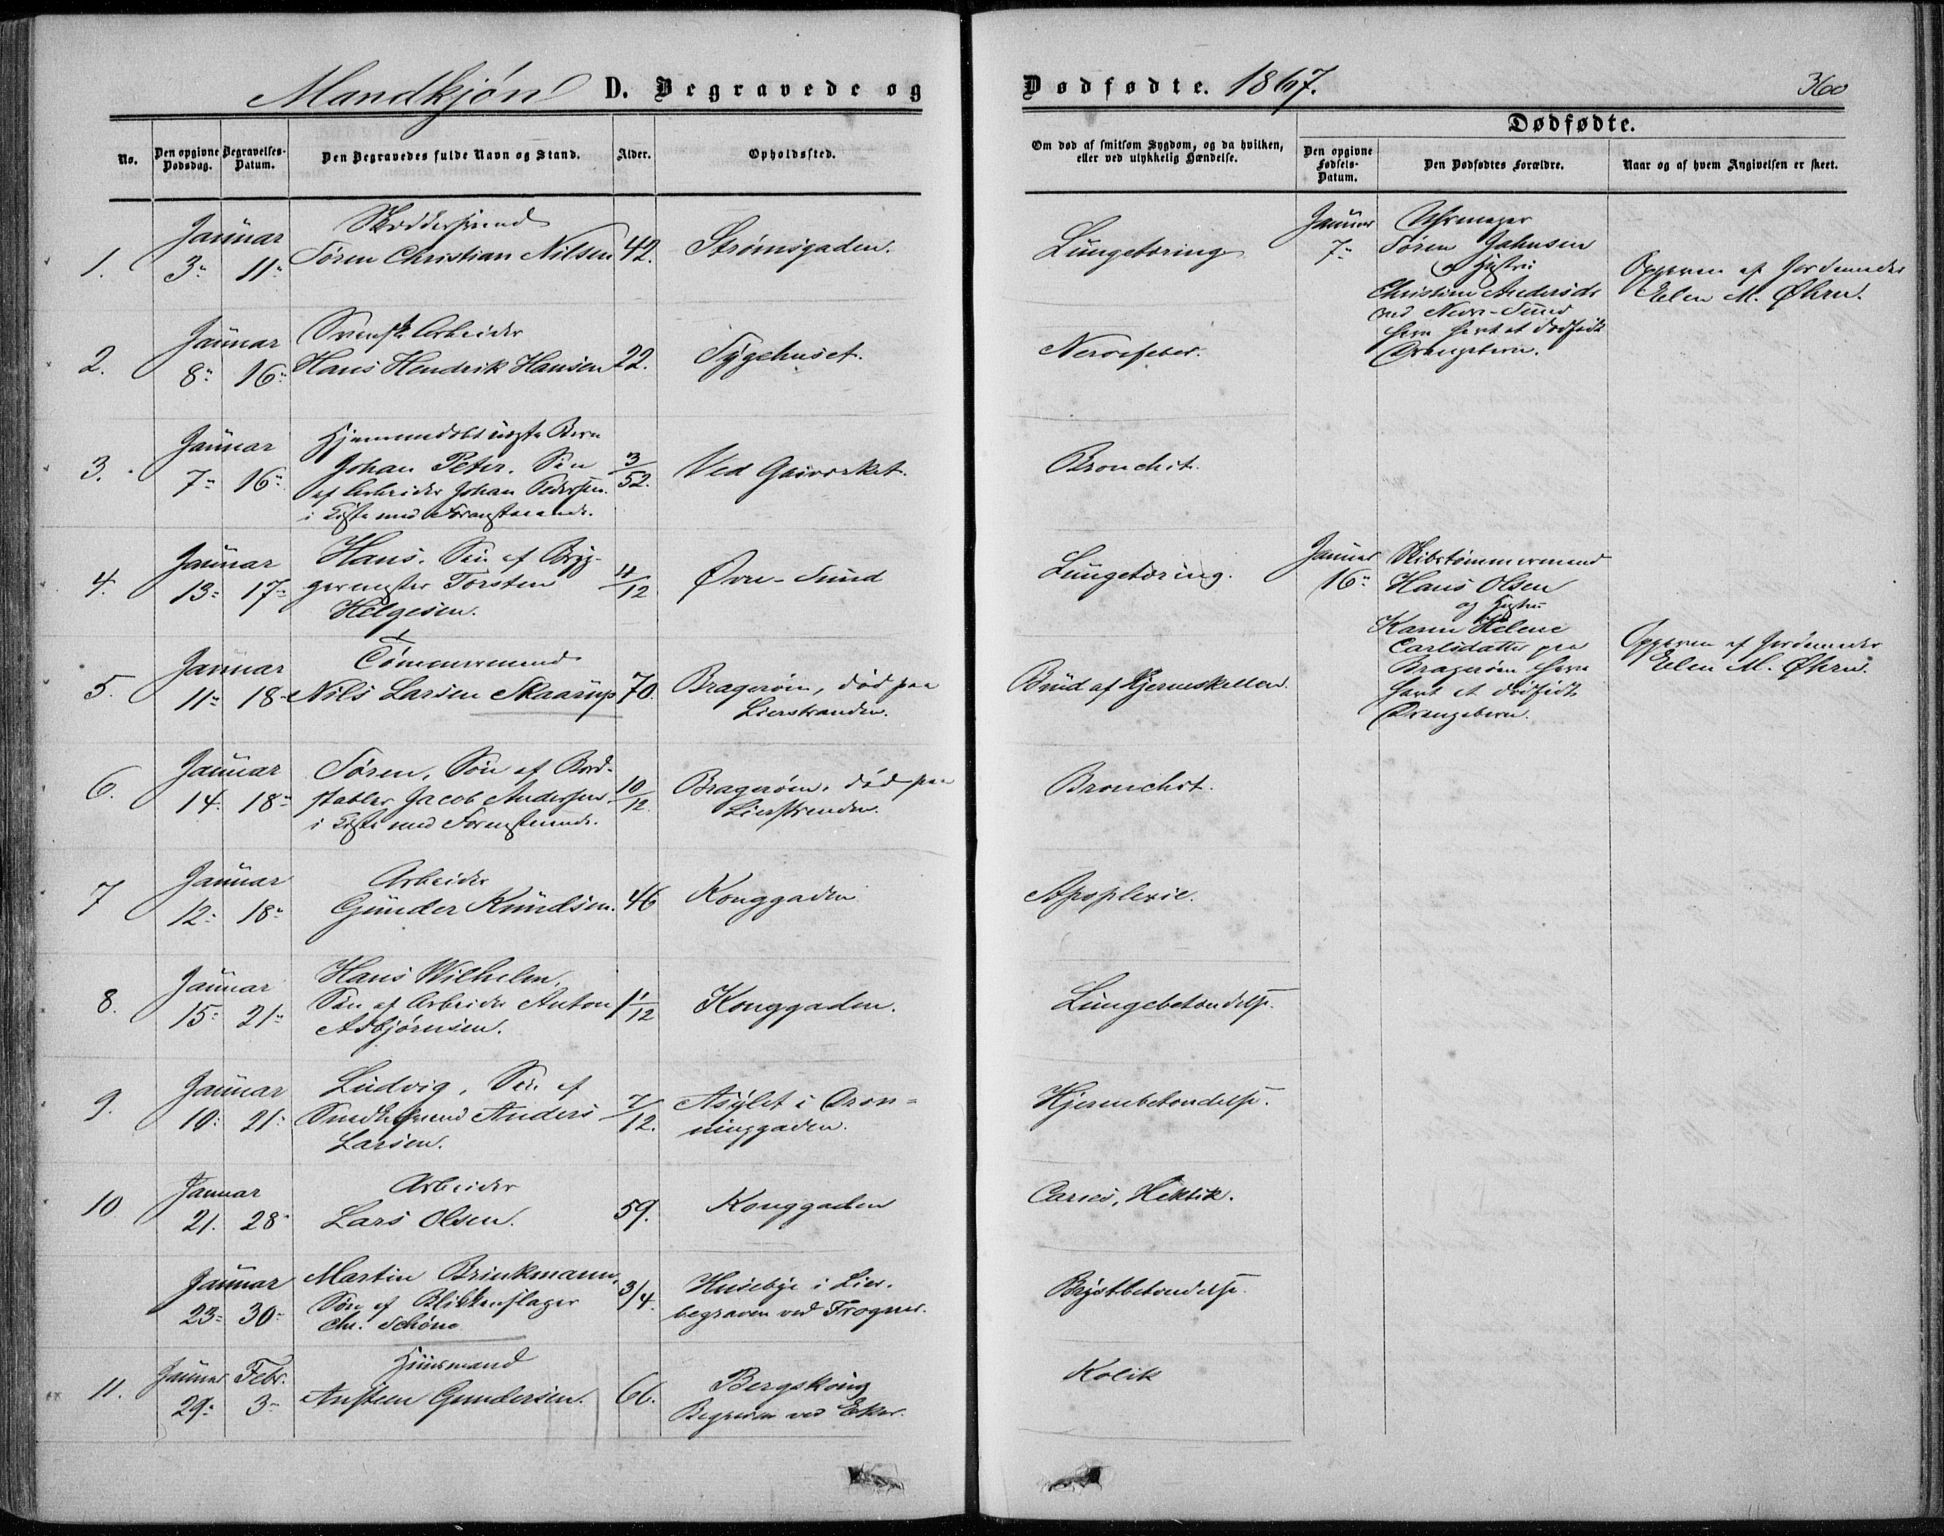 Mandkjøn D. Begravede og
Dødfødte. 1867.
360
No.
Den opgivne Dødsdag.
Begravelses-Datum.
Den Begravedes fulde Navn og Stand.
Alder.
Opholdssted.
Om død af smitsom Sygdom, og da hvilken,
eller ved ulykkelig Hændelse.
Dødfødte.
Den opgivne Fødsels-Datum.
Den Dødfødtes Forældre.
Naar og af hvem Angivelsen er skeet.
1.
Januar
3 11
Søren Christian Nilsen
42.
Strømsgaden.
Lungetæring
Januar
7
Uhrmager
Søren Jahnsen
og Hustru
Christine Andersdr
ved Nedre-Sund
født et dødfødt
Drengebarn.
Opgiven af Jordemoder
Elen M. Øhrn.
2.
Januar
8 16
Svensk Arbeider
Hans Hendrik Hansen
22.
Sygehuset.
Nervefeber.
3.
Januar
7 16
Hjemmedøbt uægte Barn
Johan Peter. Søn
af Arbeider Johan Pedersen.
i Kiste med Foranstaaende.
3/52.
Ved Gasværket.
Bronchit.
4.
Januar
13 17
Hans. Søn af Bryg-
germester Torsten
Helgesen.
4/12
Øvre-Sund
Lungetæring.
Januar
16
Skibstømmermand
Hans Olsen
og Hustru
Karen Helene
Carlsdatter paa
Bragerøen
født et dødfødt
Drengebarn.
Opgiven af Jordemoder
Elen M. Øhrn.
5.
Januar
11 18
Tømmermand
Nils Larsen Skaarup
70.
Bragerøen, død paa
Lierstranden.
Brud af Hjerneskallen.
6.
Januar
14. 18
Søren, Søn af Bord-
stabler Jacob Andersen
i Kiste med Foranstaaende.
10/12.
Bragerøen, død paa
Lierstranden.
Bronchit.
7
Januar
12 18
Arbeider
Gunder Knudsen.
46
Konggaden
Apoplexie.
8.
Januar
15 21
Hans Wilhelm,
Søn af Arbeider Anton
Asbjørnsen.
1 1/12
Konggaden.
Lungebetændelse.
9.
Januar
10 21
Ludvig, Søn af
Smedesvend Anders
Larsen.
7/12.
Asylet i Dron-
ninggaden.
Hjernebetændelse.
10
Januar
21. 28
Arbeider
Lars Olsen.
59.
Konggaden
Caries, Hektik.
Januar
23 30
Martin Brinkmann,
Søn af Blikkenslager
Chr. Schøne
3/4.
Husebye i Lier.
begraven ved Frogner.
Brystbetændelse.
11.
Januar Febr.
29 3
Huusmand
Ansteen Gundersen.
66.
Bergskoug
Begraven ved Eker.
Kolik